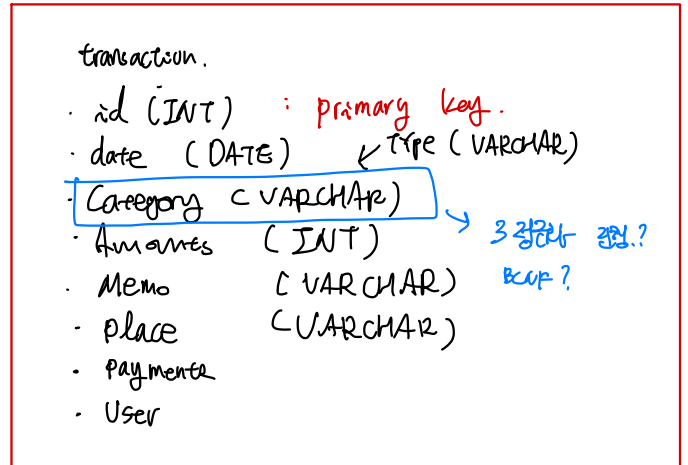 transaction.
· id (INT) : primary key.
· date (DATE) ↙ Type (VARCHAR)
· Category (VARCHAR)
· Amounts (INT) → 3정규화 관점.?
· Memo (VARCHAR) BCNF?
· place (VARCHAR)
· payments
· User